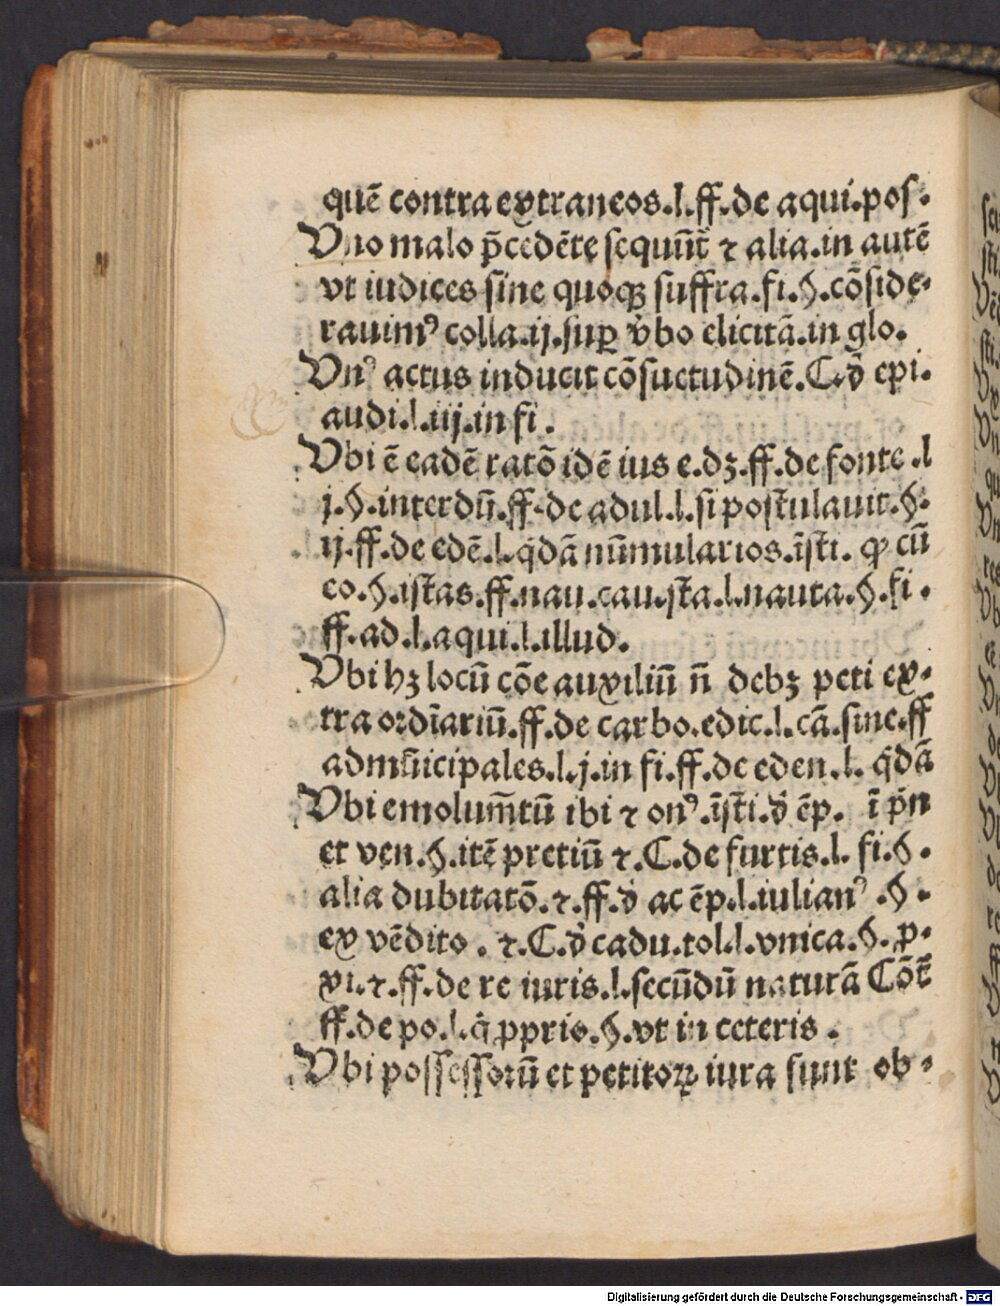 quē contra extraneos.l.ff.de aqui.pos.
Vno malo p̄cedēte sequūt̄ ⁊ alia.in autē
vt iudices sine quoqꝫ suffra.fi.§.cōside-
rauimꝰ colla.ij.suꝑ v̓bo elicitā.in glo.
Vnꝰ actus inducit cōsuetudinē.C.d̓ epi.
audi.l.iij.in fi.
Vbi ē eadē ratō idē ius e.dꝫ.ff.de fonte.l
j.§.interdū.ff.de adul.l.si postulauit.§.
ij.ff.de edē.l.q̇dā nūmularios.īsti. ꝙ cū
eo.§.istas.ff.nau.cau.sta.l.nauta.§.fi.
ff.ad.l.aqui.l.illud.
Vbi hꝫ locū cōe auxiliū n̄ debꝫ peti ex-
tra ordīariū.ff.de carbo.edic.l.cā.sine.ff
admūicipales.l.j.in fi.ff.de eden.l. q̇dā
Vbi emolum̄tū ibi ⁊ onꝰ.īsti.d̓ ēp. ī p̄n
et ven.§.itē pretiū ⁊.C.de furtis.l. fi.§.
alia dubitatō.⁊.ff.d̓ ac ēp.l.iulianꝰ.§.
ex vēdito.⁊.C.d̓ cadu.tol.l.vnica.§.ꝓ-
xi.⁊.ff.de re iuris.l.secūdū naturā Cōt̄
ff.de po.l.q̇ ꝓpris.§.vt in ceteris.
Vbi possessoꝛū et petitoꝝ iura sunt ob-
Digitalisierung gefördert durch die Deutsche Forschungsgemeinschaft - DFG